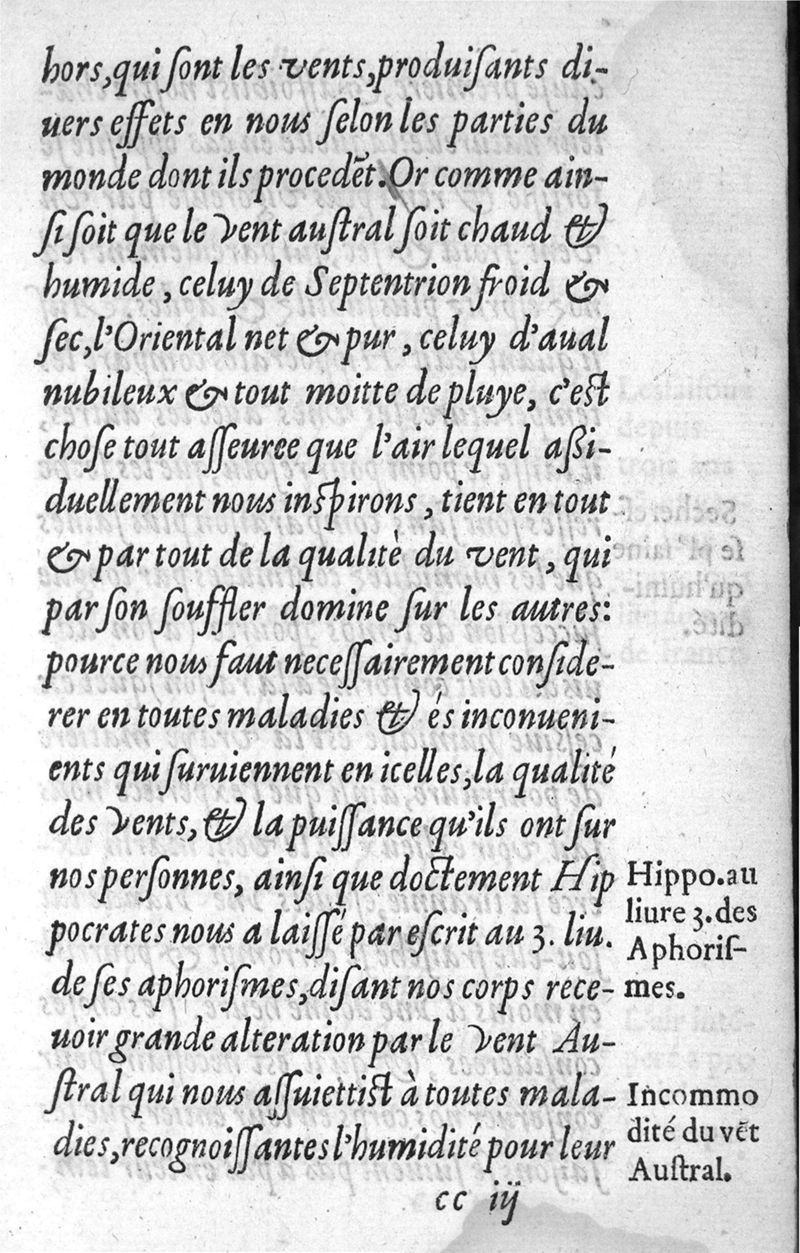 hors,qui ſont les vents,produiſants di-
uers effets en nous ſelon les parties du
monde dont ils procedēt.Or comme ain-
ſi ſoit que le vent auſtral ſoit chaud &
humide, celuy de Septentrion froid &
ſec,l'Oriental net & pur, celuy d'aual
nubileux & tout moitte de pluye, c'eſt
choſe tout aſſeuree que l'air lequel aßi-
duellement nous inſpirons, tient en tout
& par tout de la qualitè du vent, qui
par ſon ſouffler domine ſur les autres:
pource nous faut neceſſairement conſide-
rer en toutes maladies & és inconueni-
ents qui ſuruiennent en icelles,la qualité
des vents, & la puiſſance qu'ils ont ſur
nos perſonnes, ainſi que doctement Hip
pocrates nous a laiſſé par eſcrit au 3. liu.
de ſes aphoriſmes,diſant nos corps rece-
uoir grande alteration par le vent Au-
ſtral qui nous aſſuiettiſt à toutes mala-
dies,recognoiſſantes l'humidité pour leur
cc iij
Hippo.au
liure 3.des
Aphoriſ-
mes.
Incommo
dité du vēt
Auſtral.